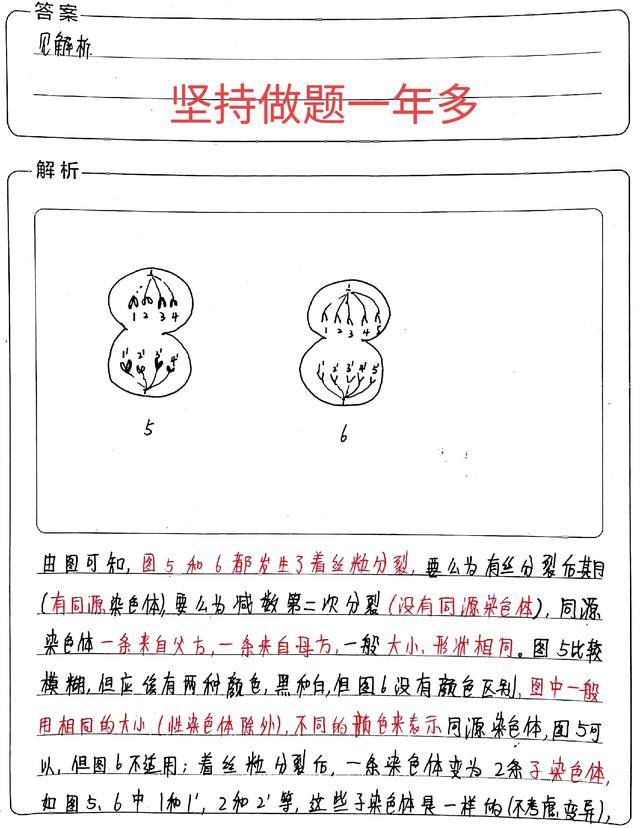 答案
见解析
坚持做题一年多
解析
1 2 3 4
1' 2' 3' 4'
5
1 2 3 4 5
1' 2' 3' 4' 5'
6
由图可知,图5和6都发生了着丝粒分裂,要么为有丝分裂后期
(有同源染色体),要么为减数第二次分裂(没有同源染色体),同源
染色体一条来自父方,一条来自母方,一般大小、形状相同。图5比较
模糊,但应该有两种颜色,黑和白,但图6没有颜色区别,图中一般
用相同的大小(性染色体除外),不同的颜色来表示同源染色体,图5可
以,但图6不适用;着丝粒分裂后,一条染色体变为2条子染色体,
如图5、6中1和1',2和2'等,这些子染色体是一样的(不考虑变异),